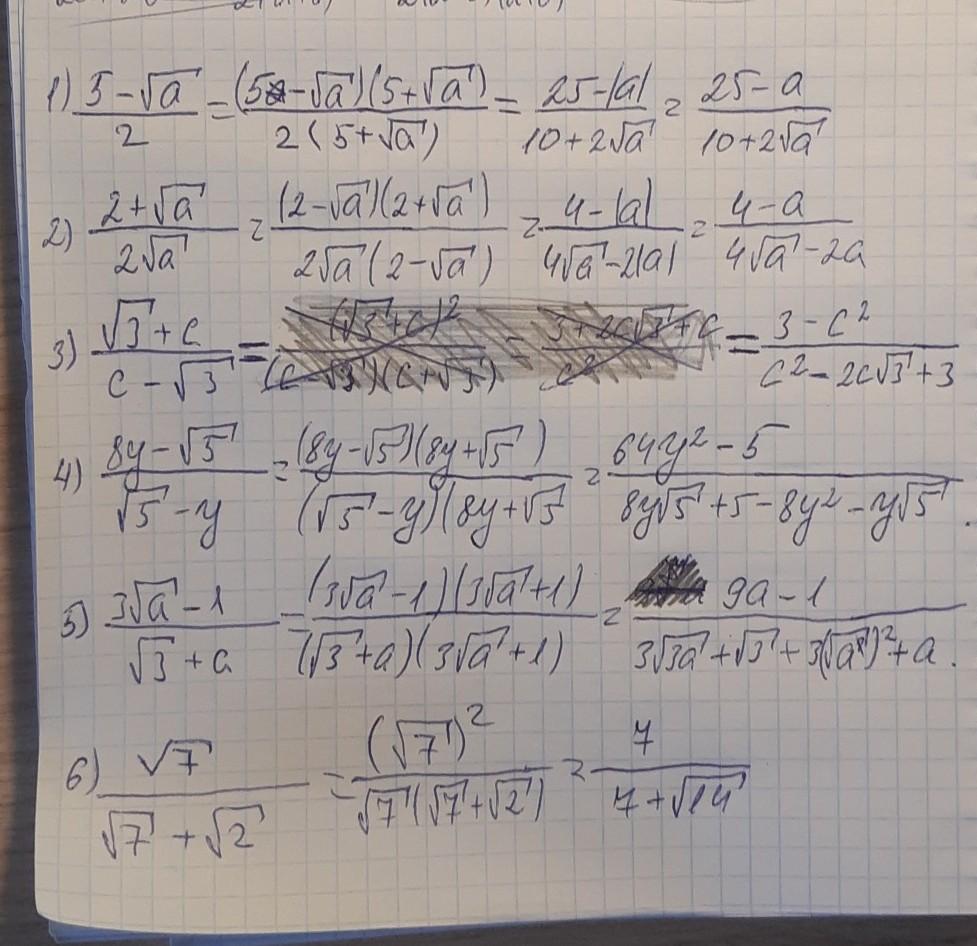 1) (5-√a)/2 = ((5-√a)(5+√a))/(2(5+√a)) = (25-|a|)/(10+2√a) = (25-a)/(10+2√a)
2) (2+√a)/(2√a) = ((2-√a)(2+√a))/(2√a(2-√a)) = (4-|a|)/(4√a-2|a|) = (4-a)/(4√a-2a)
3) (√3+c)/(c-√3) = (3-c²)/(c²-2c√3+3)
4) (8y-√5)/(√5-y) = ((8y-√5)(8y+√5))/((√5-y)(8y+√5 = (64y²-5)/(8y√5+5-8y²-y√5).
5) (3√a-1)/(√3+a) = ((3√a-1)(3√a+1))/((√3+a)(3√a+1)) = (9a-1)/(3√3a+√3+3(√a)²+a).
6) √7/(√7+√2) = (√7)²/(√7(√7+√2)) = 7/(7+√14)